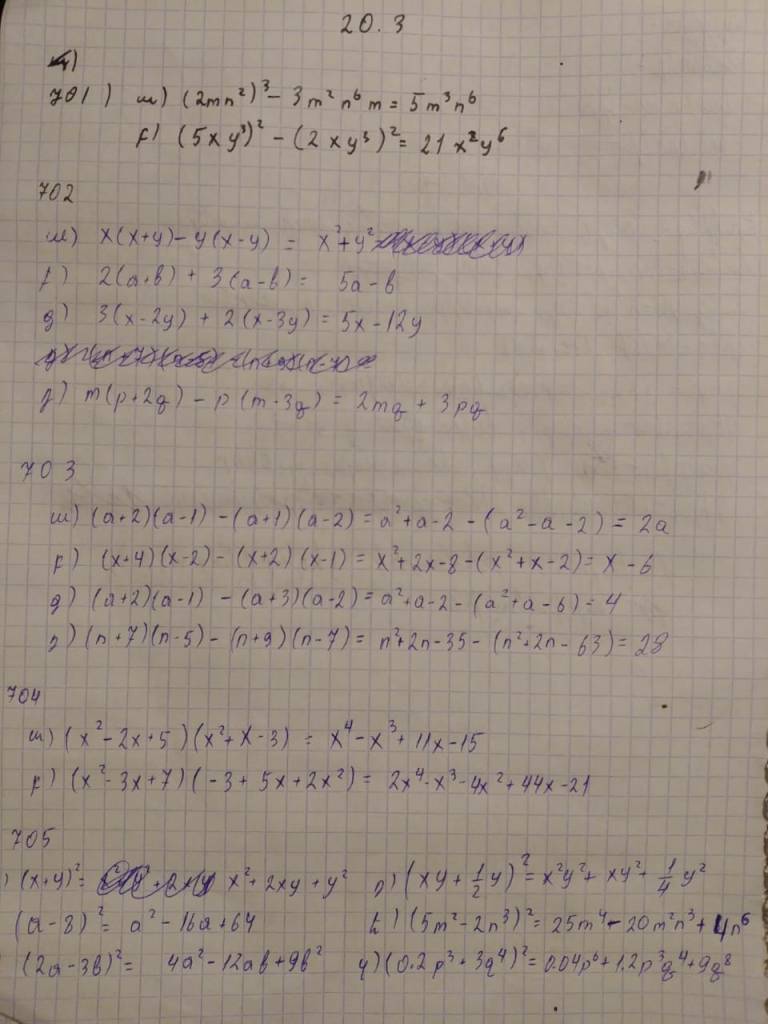 20.3
701) ա) (2mn²)³ - 3m²n⁶m = 5m³n⁶
բ) (5xy³)² - (2xy³)² = 21x²y⁶
702
ա) x(x+y) - y(x-y) = x²+y²
բ) 2(a+b) + 3(a-b) = 5a-b
գ) 3(x-2y) + 2(x-3y) = 5x-12y
դ) m(p+2q) - p(m-3q) = 2mq + 3pq
703
ա) (a+2)(a-1) - (a+1)(a-2) = a²+a-2 - (a²-a-2) = 2a
բ) (x+4)(x-2) - (x+2)(x-1) = x²+2x-8-(x²+x-2) = x-6
գ) (a+2)(a-1) - (a+3)(a-2) = a²+a-2-(a²+a-6) = 4
դ) (n+7)(n-5) - (n+9)(n-7) = n²+2n-35-(n²+2n-63) = 28
704
ա) (x²-2x+5)(x²+x-3) = x⁴-x³+11x-15
բ) (x²-3x+7)(-3+5x+2x²) = 2x⁴-x³-4x²+44x-21
705
) (x+y)² = x²+2xy+y² դ) (xy+½y)² = x²y²+xy²+¼y²
(a-8)² = a²-16a+64 ե) (5m²-2n³)² = 25m⁴-20m²n³+4n⁶
(2a-3b)² = 4a²-12ab+9b² զ) (0.2p³+3q⁴)² = 0.04p⁶+1.2p³q⁴+9q⁸